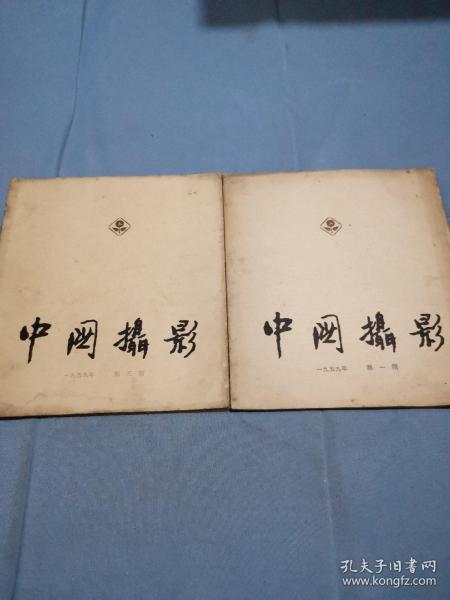 中國攝影
一九五九年 第三期
中國攝影
一九五九年 第一期
孔夫子旧书网
www.kongfz.com